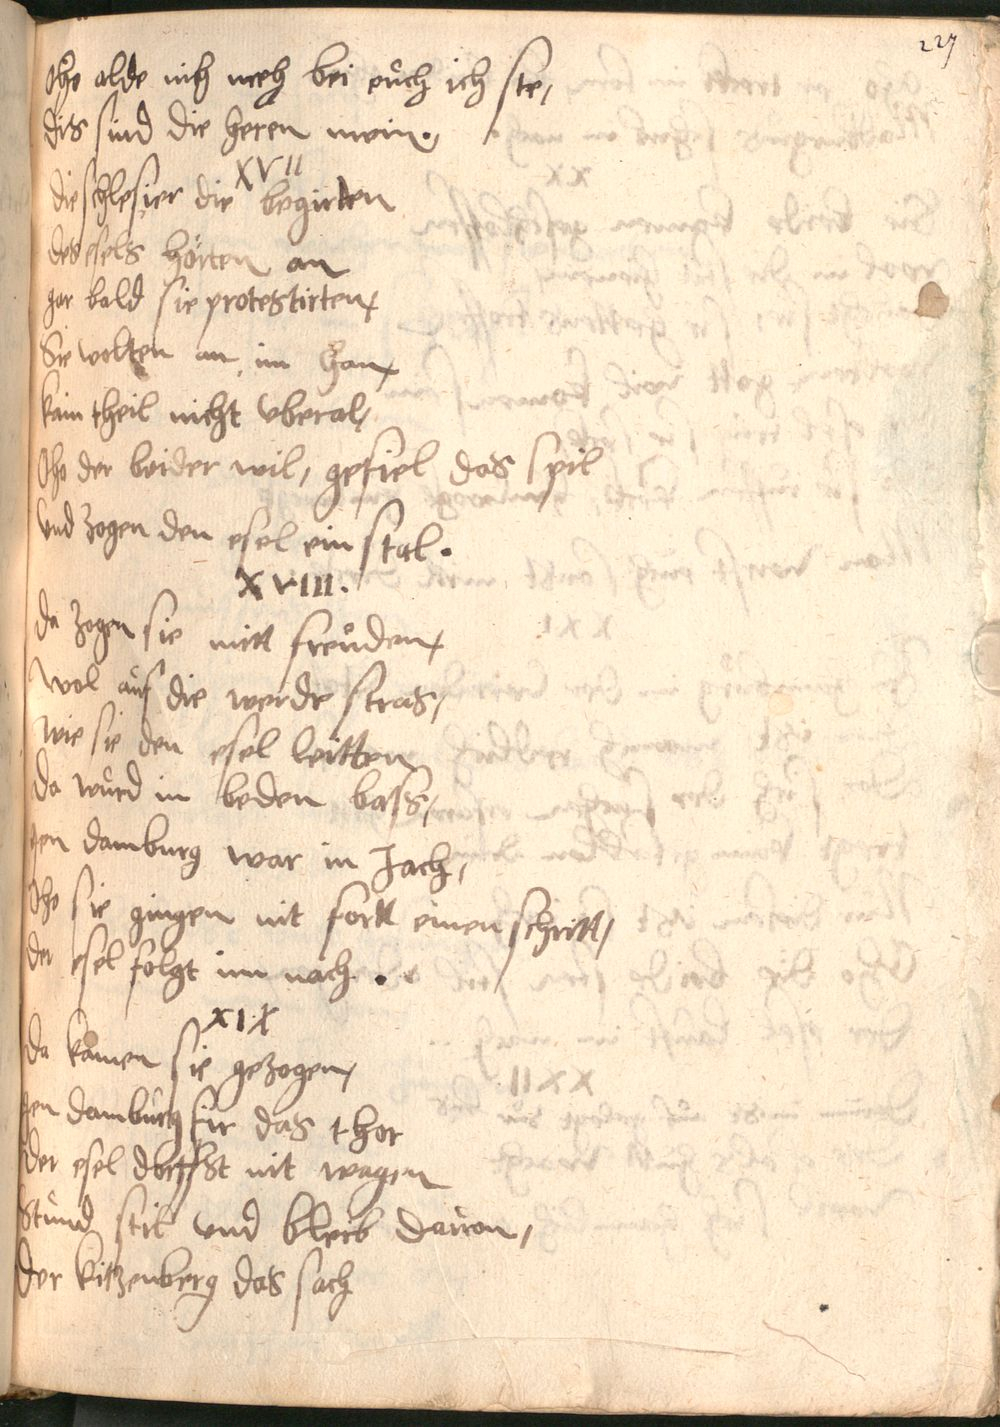 227
Oho alde nih meh bei euch ich ste,
dis sind die heren mein.,
XVII
die schlesier die begirten
des esels hörten an
gar bald sie protestirten,
Sie wolten an im han,
kain theil nicht vberal,
Oho der beider wil, gefiel das spil
vnd zogen den esel ein stal.
XVIII.
da zogen sie mitt freuden,
wol auf die werde stras,
wie sie den esel leitten
da wurd in beden bass,
gen damburg war in Jach,
Oho sie gingen nit fortt einen schritt,
der esel folgt im nach.
XIX
da kamen sie gezogen,
gen damburg fir das thor
der esel dorfft nit wagen
stund stil vnd bleib daruon,
der kitzenberg das sach